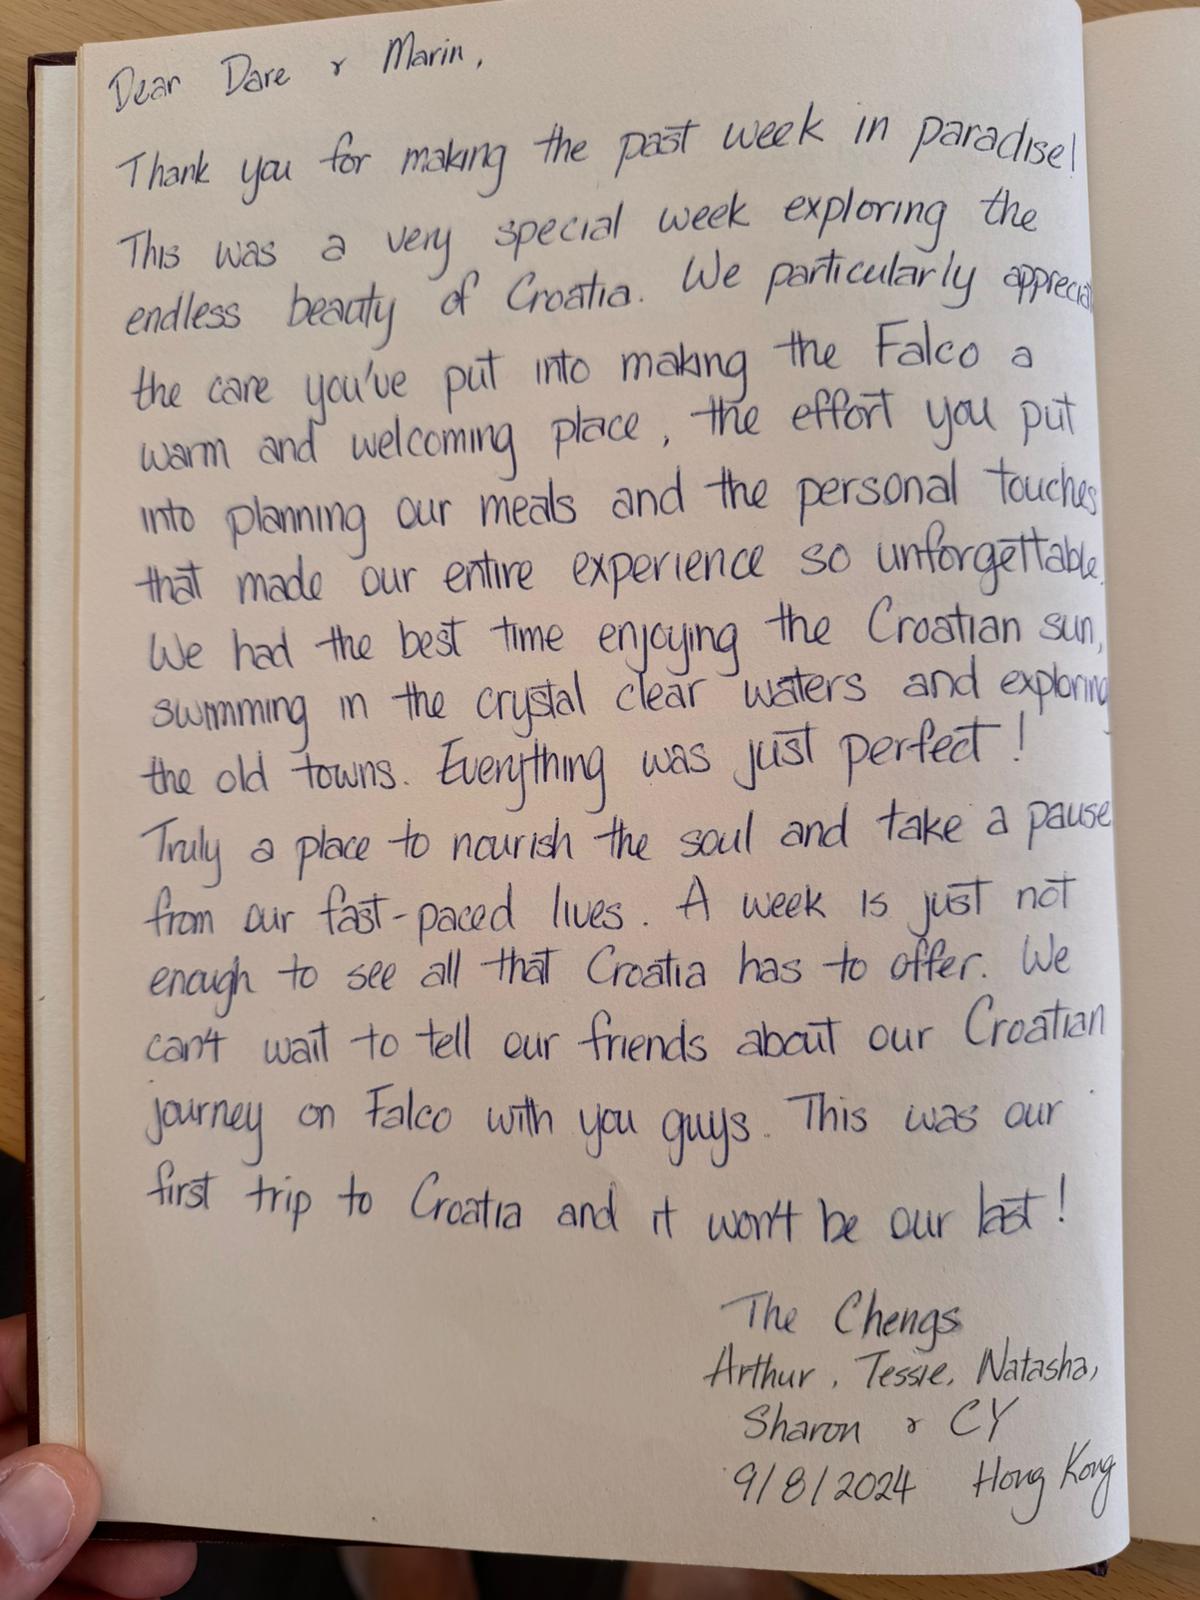 Dear Dare & Marin,
Thank you for making the past week in paradise!
This was a very special week exploring the
endless beauty of Croatia. We particularly apprecia
the care you've put into making the Falco a
warm and welcoming place, the effort you put
into planning our meals and the personal touches
that made our entire experience so unforgettable.
We had the best time enjoying the Croatian sun,
swimming in the crystal clear waters and exploring
the old towns. Everything was just perfect!
Truly a place to nourish the soul and take a pause
from our fast-paced lives. A week is just not
enough to see all that Croatia has to offer. We
can't wait to tell our friends about our Croatian
journey on Falco with you guys. This was our
first trip to Croatia and it won't be our last!
The Chengs
Arthur, Tessie, Natasha,
Sharon & CY
9/8/2024 Hong Kong